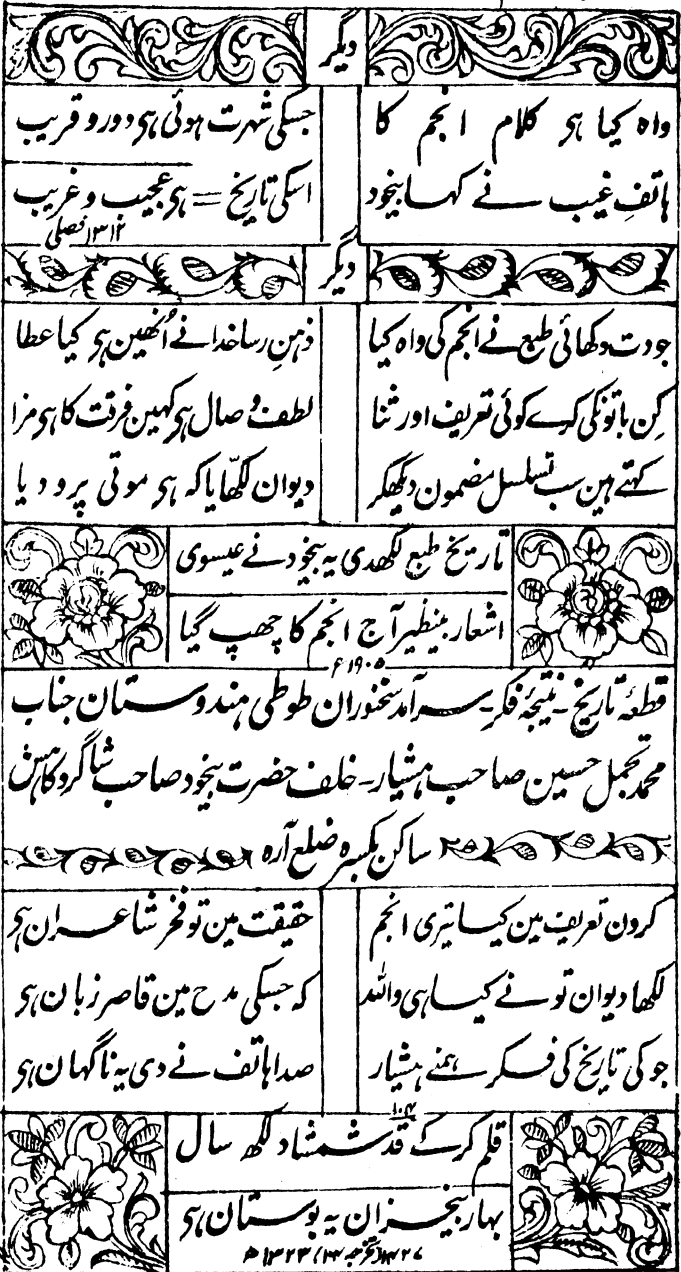 دیگر
واہ کیا ہے کلام انجم کا جسکی شہرت ہوئی ہے دور و قریب
ہاتفِ غیب نے کہا بیخود اسکی تاریخ = ہے عجیب و غریب
۱۳۱۲ فصلی
دیگر
جودت دکھائی طبع نے انجم کی واہ کیا ذہنِ رسا خدا نے اُنھین ہے کیا عطا
کِن باتونکی کرے کوئی تعریف اور ثنا لطف وصال ہے کہین فرقت کا ہے مزا
کہتے ہین سب تسلسل مضمون دیکھکر دیوان لکھّا یا کہ ہے موتی پرو دیا
تاریخ طبع لکھدی یہ بیخود نے عیسوی
اشعار بینظیر آج انجم کا چھپ گیا
۱۹۰۵ء
قطعۂ تاریخ ۔ نتیجۂ فکر ۔ سرآمد سخنوران طوطی ہندوستان جناب
محمد تجمل حسین صاحب ہشیار ۔ خلف حضرت بیخود صاحب شاگرد کاہش
ساکن بکسرہ ضلع آرہ
کرون تعریف مین کیا تیری انجم حقیقت مین تو فخر شاعران ہے
لکھا دیوان تو نے کیسا ہی واللہ کہ جسکی مدح مین قاصر زبان ہے
جو کی تاریخ کی فکر ہمنے ہشیار صدا ہاتف نے دی یہ ناگہان ہے
قلم کرکے قد شمشاد لکھ سال
۱۰۴
بہار بیخزان یہ بوستان ہے
۱۴۲۷ ۱۳۲۳ھ